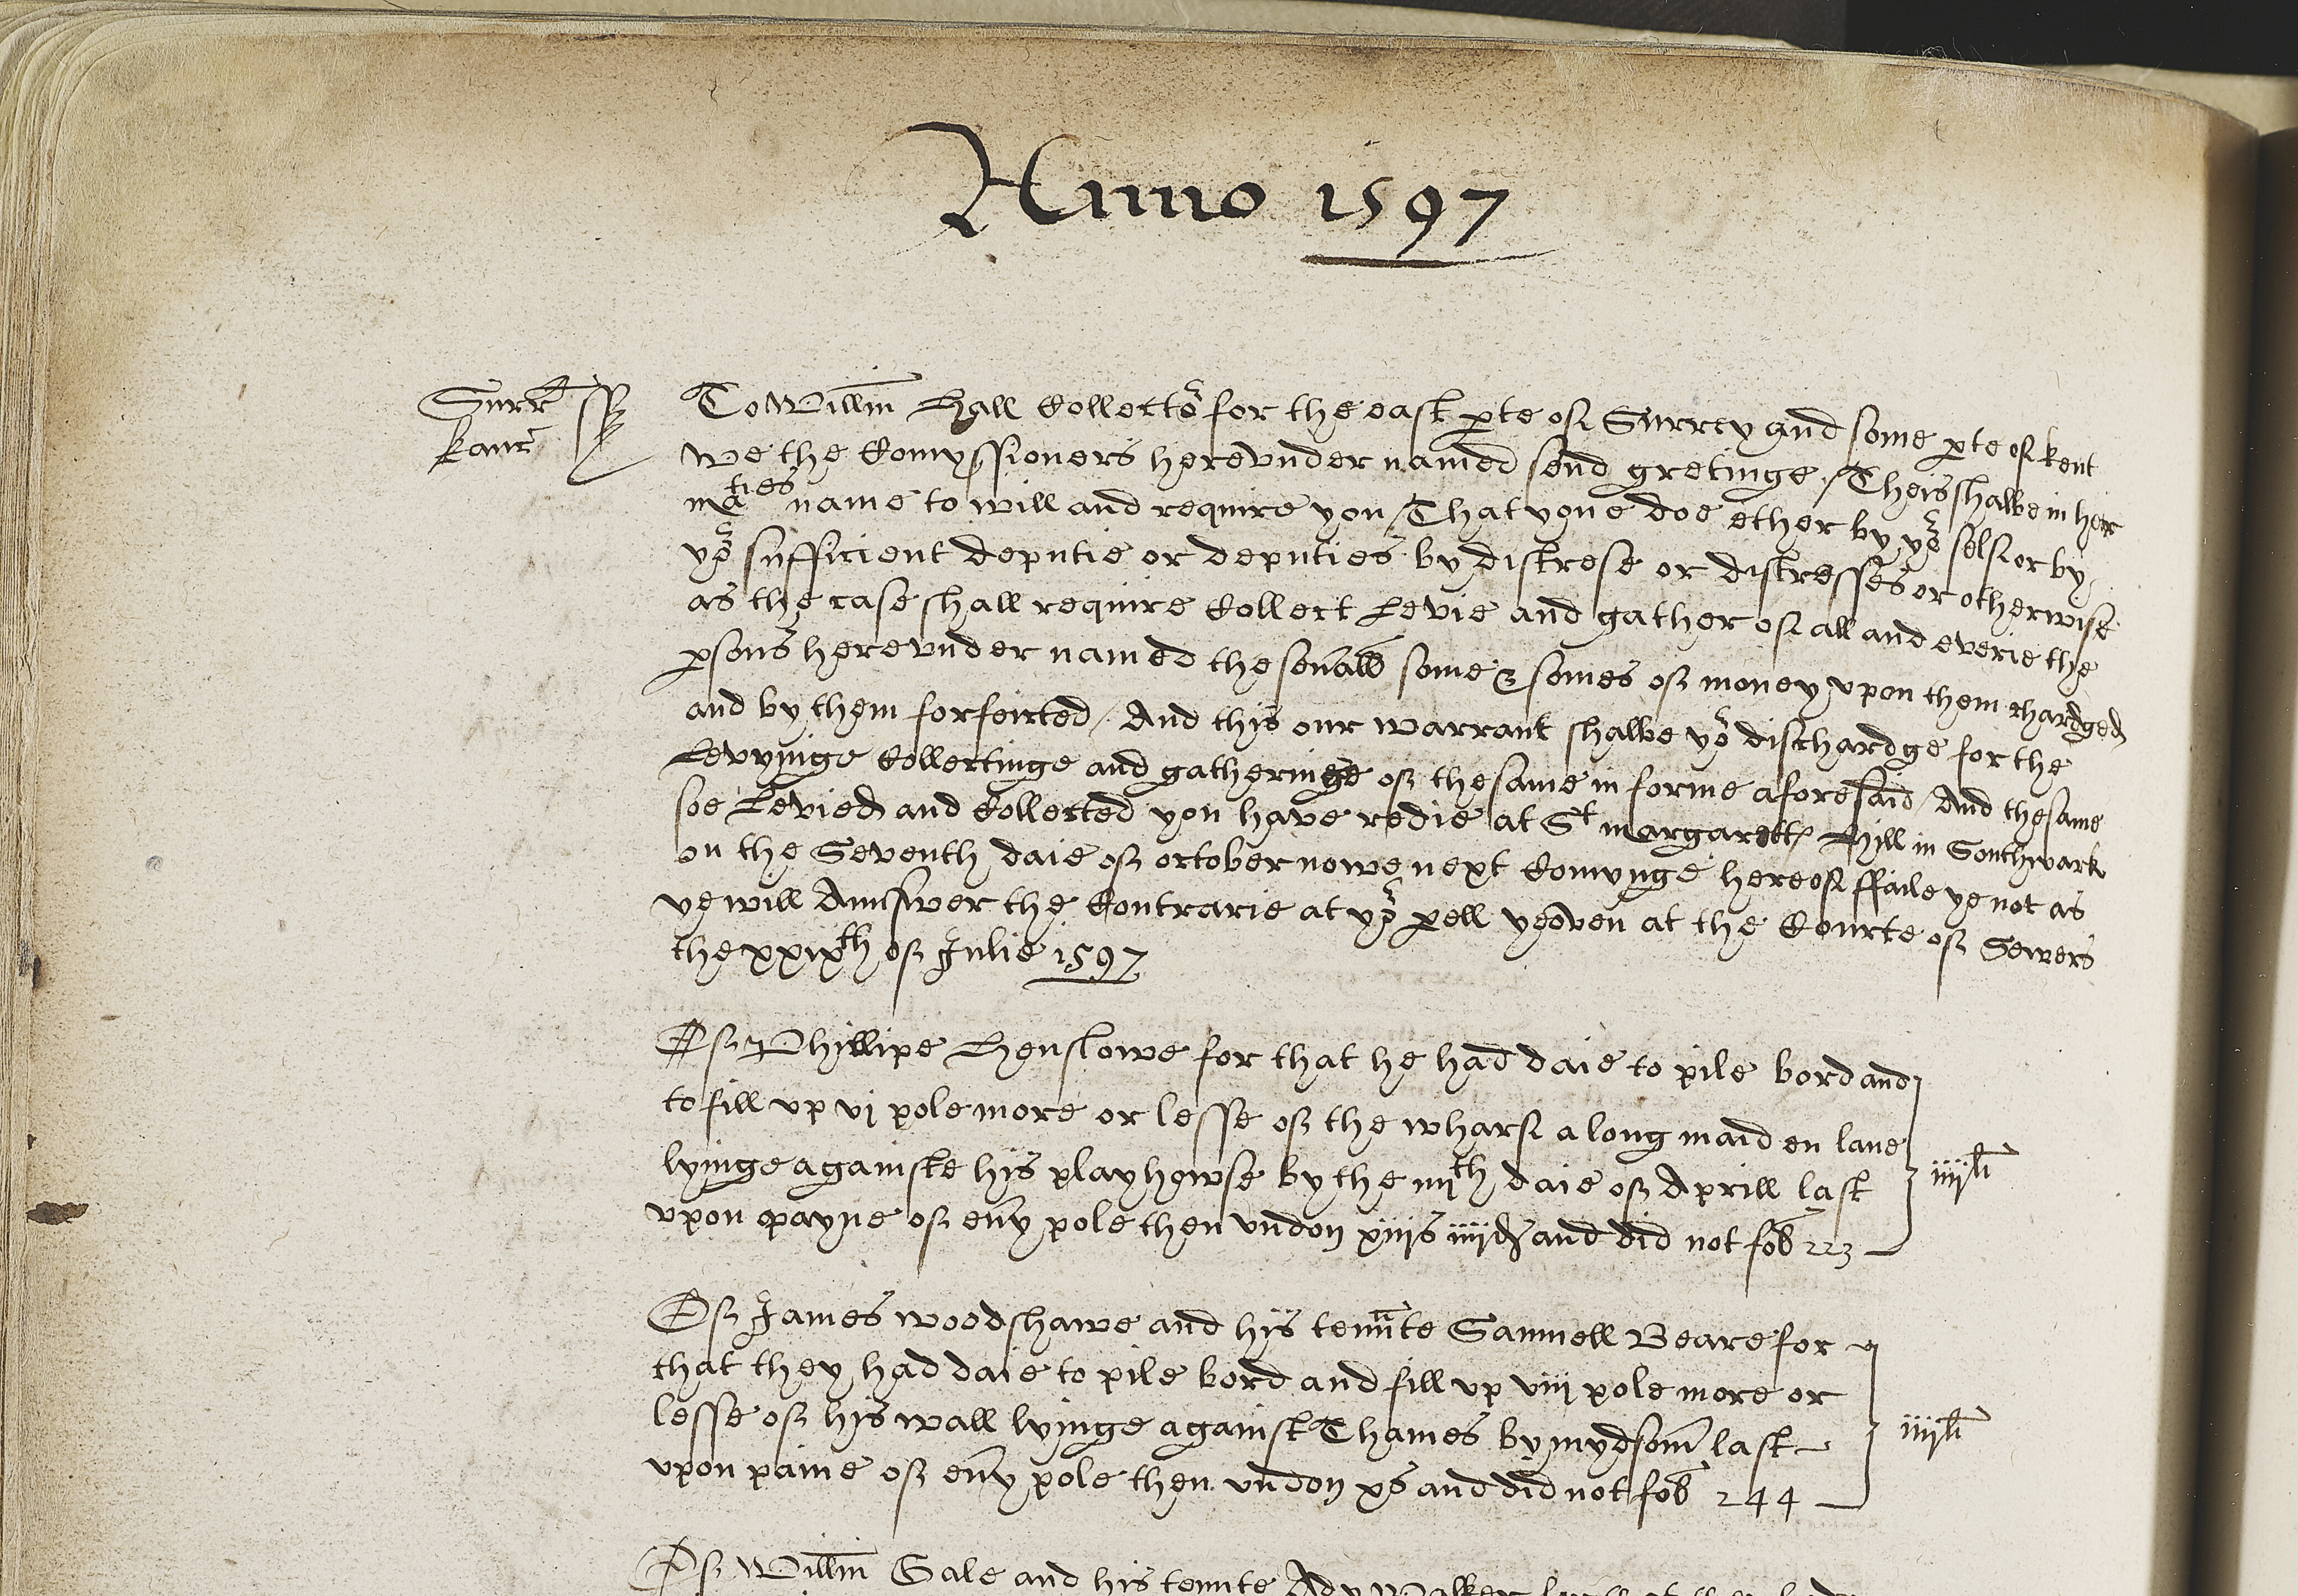 Anno 1597
Surr ss
kanc
To Willm Hall Collector for the east pte of Surrey and some pte of kent
we the Comyssioners herevnder named send gretinge / Theis shalbe in her
maties name to will and require you / That youe doe ether by yor self or by
yor sufficient deputie or deputies by distrese or distresses or otherwise
as the case shall require Collect Levie and gather of all and everie the
psons herevnder named the seuall some & somes of money vpon them chardged
and by them forfeited / And this our warrant shalbe yor dischardge for the
Levyinge Collectinge and gatheringe of the same in forme aforesaid / And the same
soe Levied and Collected you have redie at St margarette Hill in Southwark
on the Seventh daie of october nowe next Comynge hereof ffaile ye not as
ye will Aunswer the Contrarie at yor pell yeoven at the Courte of Sewers
the xxixth of Julie 1597
Of Phillipe Henslowe for that he had daie to pile bord and
to fill vp vj pole more or lesse of the wharf along maiden lane
lyinge againste his playhowse by the iiijth daie of Aprill last
vpon payne of euy pole then vndon xiijs iiijd and did not fol 223
iiijli
Of James woodshawe and his tennte Samuell Beare for
that they had daie to pile bord and fill vp viij pole more or
lesse of his wall lyinge against Thames by mydsom last
vpon paine of euy pole then vndon xs and did not fol 244
iiijli
Of Willm Gale and his tennte